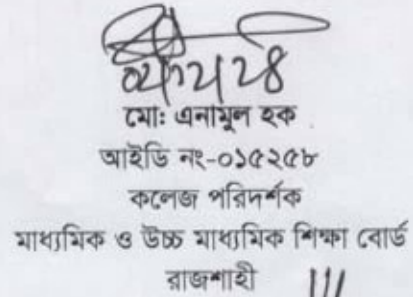 মোঃ এনামুল হক
আইডি নং-০১৫২৫৮
কলেজ পরিদর্শক
মাধ্যমিক ও উচ্চ মাধ্যমিক শিক্ষা বোর্ড
রাজশাহী